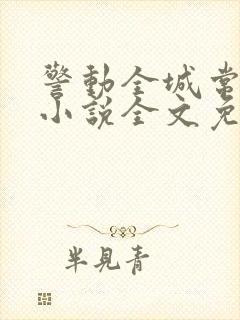 警動全城常
小說全文免
半見青